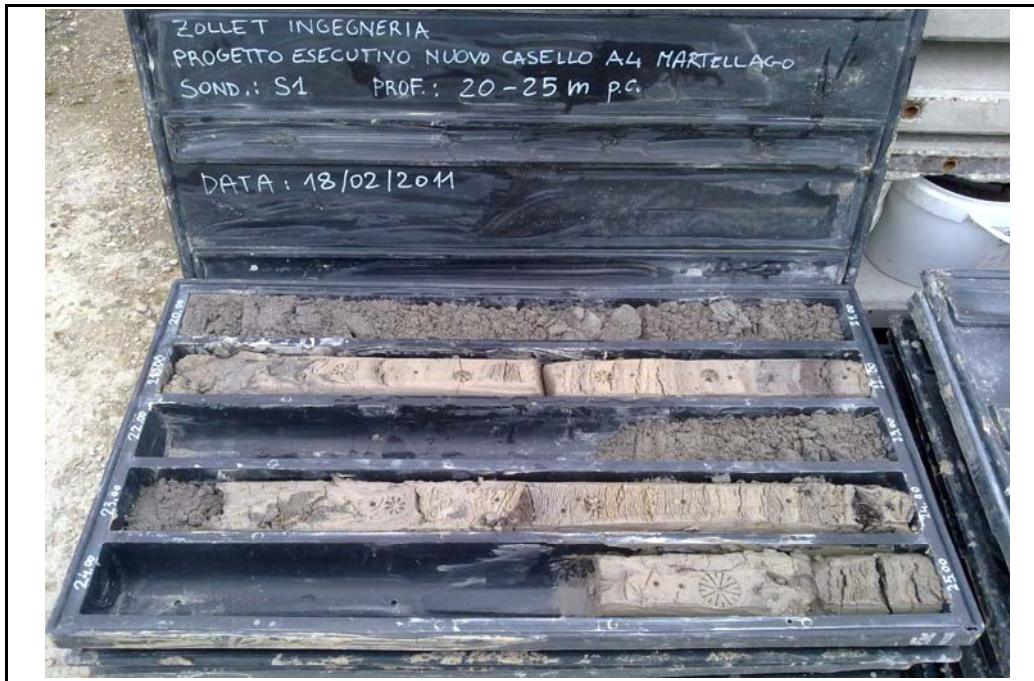 ZOLLET INGEGNERIA
PROGETTO ESECUTIVO NUOVO CASELLO A4 MARTELLAGO
SOND.: S1 PROF.: 20-25 m p.c.
DATA: 18/02/2011
20.00 21.00
21.00 22.00
22.00 23.00
23.00 24.00
24.00 25.00